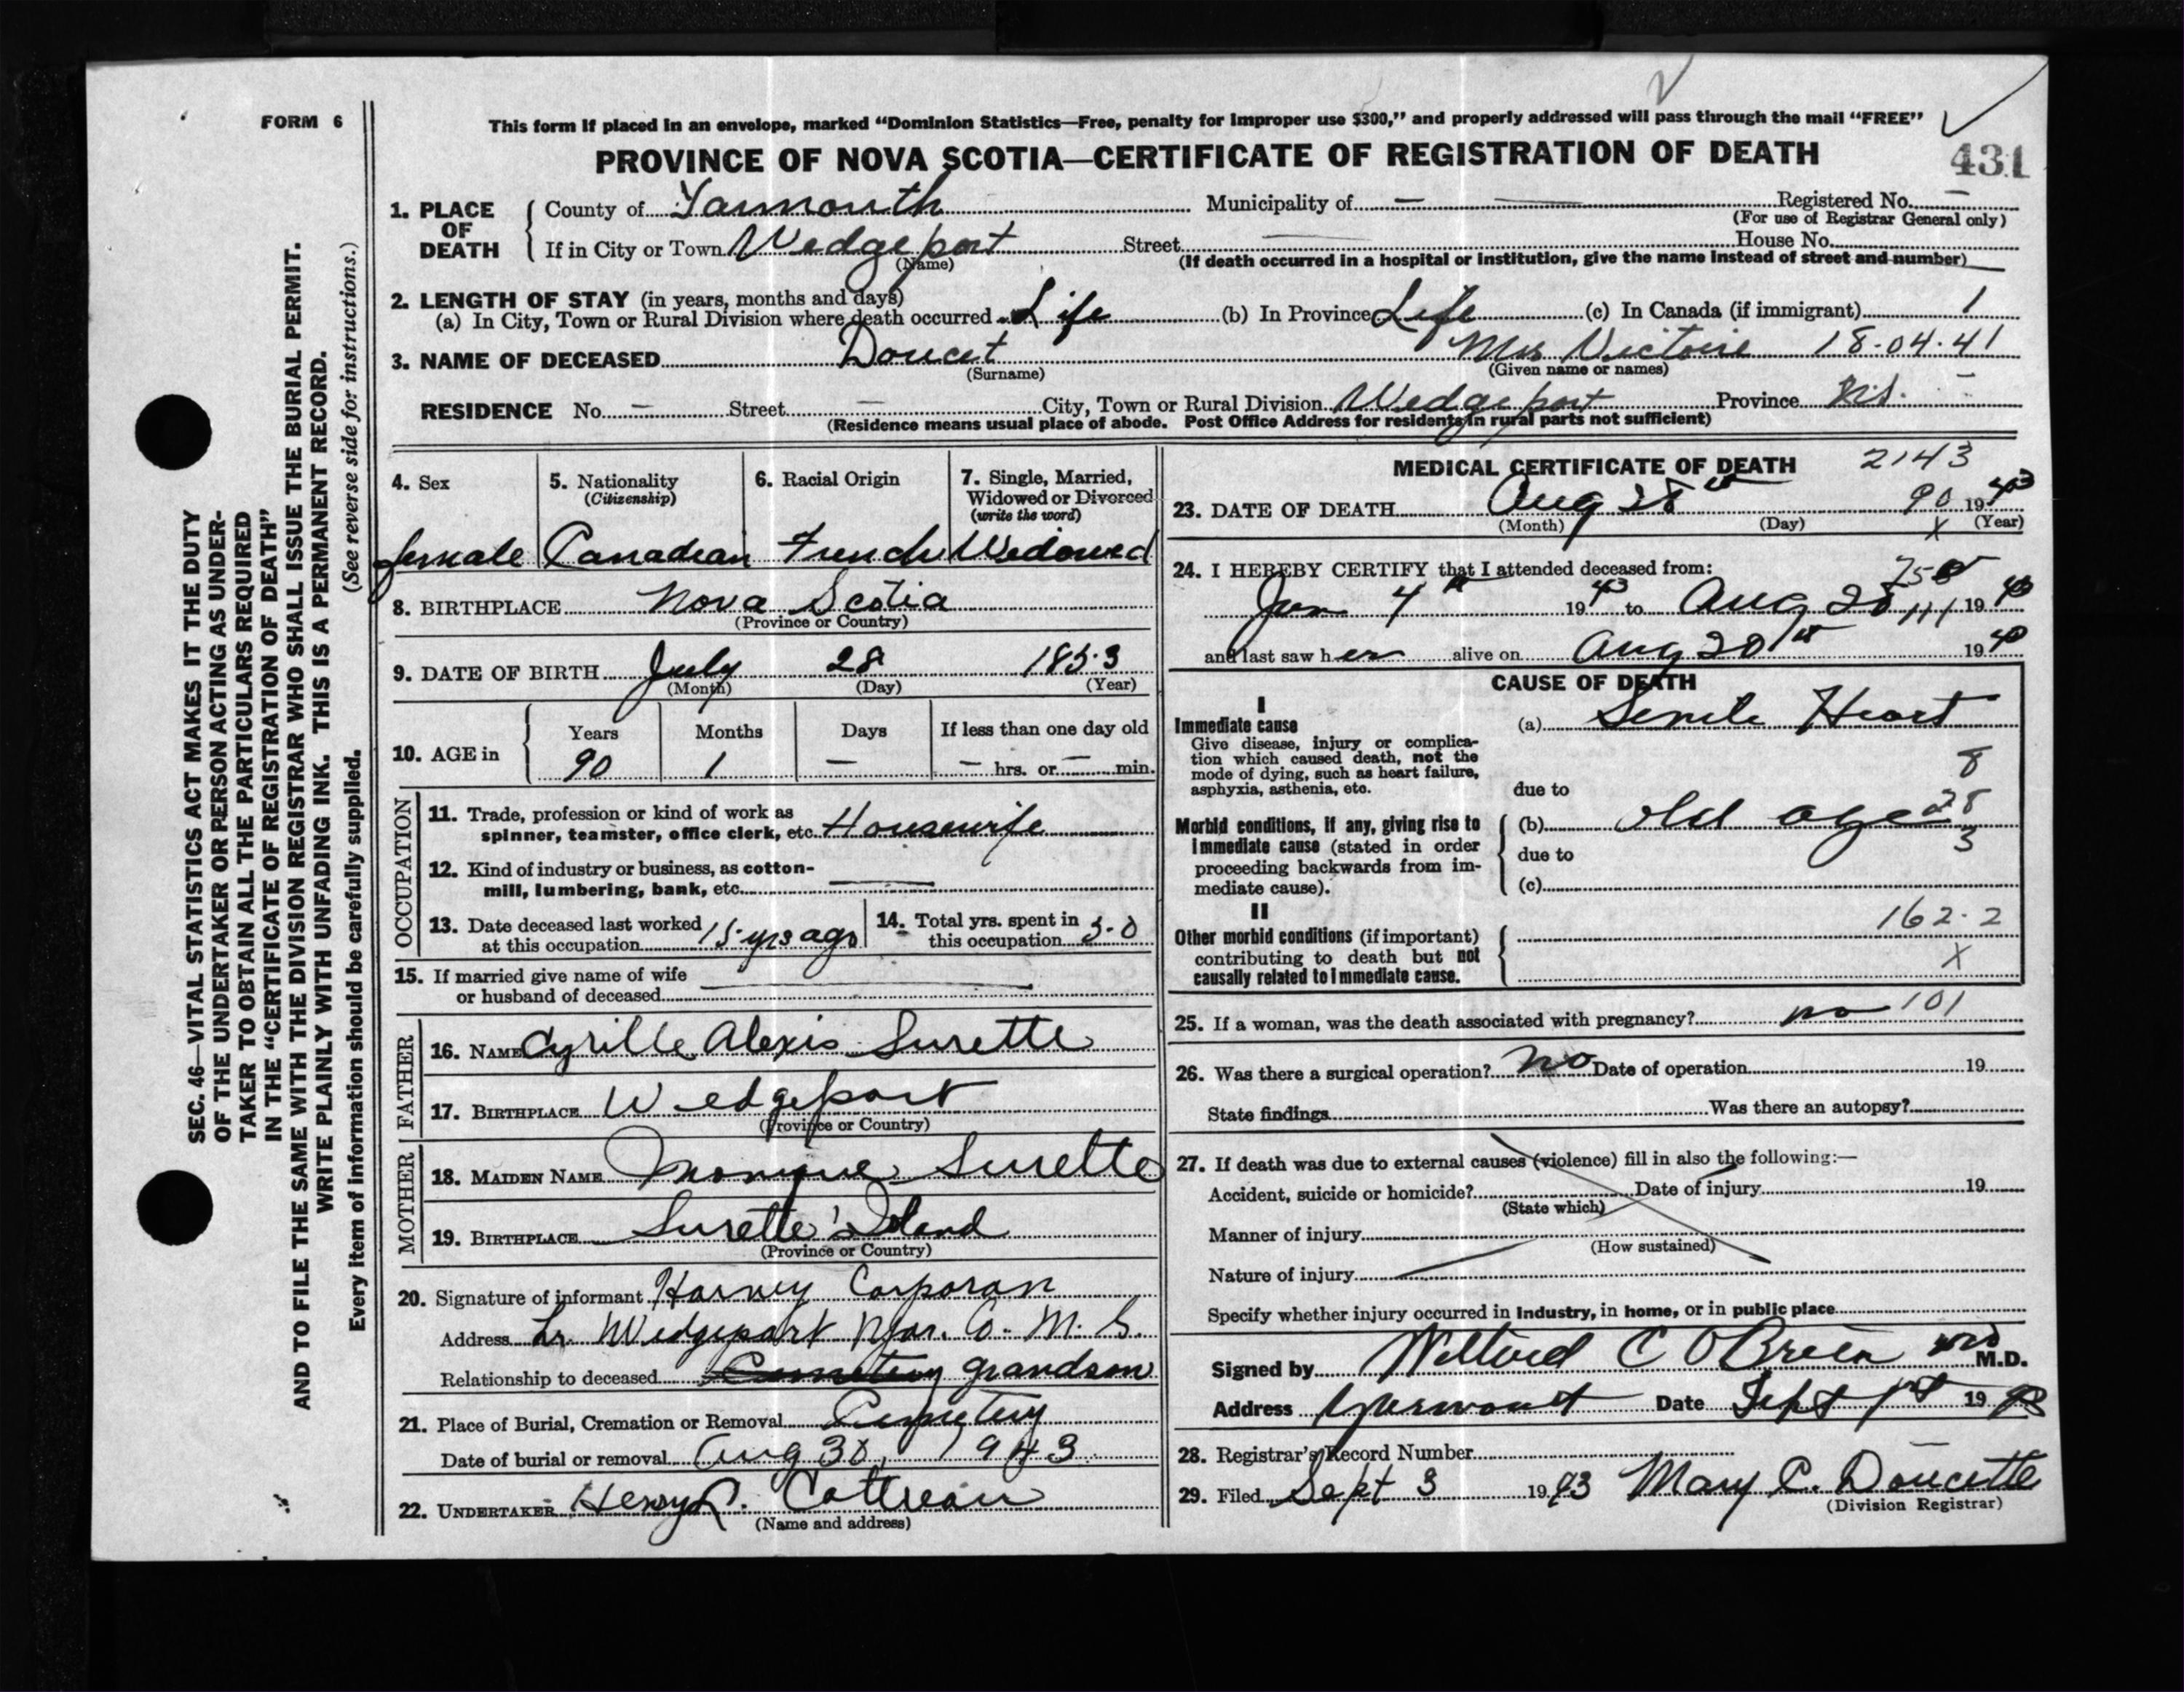 FORM 6
This form if placed in an envelope, marked “Dominion Statistics—Free, penalty for improper use $300,” and properly addressed will pass through the mail “FREE”
PROVINCE OF NOVA SCOTIA—CERTIFICATE OF REGISTRATION OF DEATH
431
1. PLACE OF DEATH
County of Yarmouth Municipality of — — Registered No. —
(For use of Registrar General only)
If in City or Town Wedgeport Street — House No.
(Name) (If death occurred in a hospital or institution, give the name instead of street and number)
2. LENGTH OF STAY (in years, months and days)
(a) In City, Town or Rural Division where death occurred Life (b) In Province Life (c) In Canada (if immigrant) 1
3. NAME OF DECEASED Doucet Mrs Victoire 18-04-41
(Surname) (Given name or names)
RESIDENCE No. — Street — City, Town or Rural Division Wedgeport Province N.S. —
(Residence means usual place of abode. Post Office Address for residents in rural parts not sufficient)
4. Sex
female
5. Nationality
(Citizenship)
Canadian
6. Racial Origin
French
7. Single, Married,
Widowed or Divorced
(write the word)
Widowed
8. BIRTHPLACE Nova Scotia
(Province or Country)
9. DATE OF BIRTH July 28 1853
(Month) (Day) (Year)
10. AGE in
Years Months Days If less than one day old
90 1 — — hrs. or — min.
OCCUPATION
11. Trade, profession or kind of work as
spinner, teamster, office clerk, etc. Housewife
12. Kind of industry or business, as cotton-
mill, lumbering, bank, etc. —
13. Date deceased last worked
at this occupation 15 yrs ago
14. Total yrs. spent in
this occupation 50
15. If married give name of wife
or husband of deceased —
FATHER
16. NAME Cyrille Alexis Surette
17. BIRTHPLACE Wedgeport
(Province or Country)
MOTHER
18. MAIDEN NAME Monique Surette
19. BIRTHPLACE Surette's Island
(Province or Country)
20. Signature of informant Harvey Corporan
Address Lr. Wedgeport Yar. Co. N. S.
Relationship to deceased Cemetery grandson
21. Place of Burial, Cremation or Removal Cemetery
Date of burial or removal Aug 30, 1943
22. UNDERTAKER Henry L. Cottreau
(Name and address)
MEDICAL CERTIFICATE OF DEATH 2143
23. DATE OF DEATH Aug 28th 90 1943
(Month) (Day) x (Year)
24. I HEREBY CERTIFY that I attended deceased from:
Jan 4th 1943 to Aug 20 1943
and last saw her alive on Aug 20th 19
CAUSE OF DEATH
I
Immediate cause
Give disease, injury or complica-
tion which caused death, not the
mode of dying, such as heart failure,
asphyxia, asthenia, etc.
(a) Senile Heart
8
due to
28
Morbid conditions, if any, giving rise to
immediate cause (stated in order
proceeding backwards from im-
mediate cause).
(b) old age
3
due to
(c)
II
Other morbid conditions (if important)
contributing to death but not
causally related to immediate cause.
162.2
X
25. If a woman, was the death associated with pregnancy? no 101
26. Was there a surgical operation? No Date of operation 19
State findings Was there an autopsy?
27. If death was due to external causes (violence) fill in also the following:—
Accident, suicide or homicide? Date of injury 19
(State which)
Manner of injury
(How sustained)
Nature of injury
Specify whether injury occurred in industry, in home, or in public place
Signed by C O'Brien MD M.D.
Address Date Sept 1st 1943
28. Registrar's Record Number —
29. Filed Sept 3 1943 Mary C. Doucette
(Division Registrar)
SEC. 46—VITAL STATISTICS ACT MAKES IT THE DUTY
OF THE UNDERTAKER OR PERSON ACTING AS UNDER-
TAKER TO OBTAIN ALL THE PARTICULARS REQUIRED
IN THE “CERTIFICATE OF REGISTRATION OF DEATH”
AND TO FILE THE SAME WITH THE DIVISION REGISTRAR WHO SHALL ISSUE THE BURIAL PERMIT.
WRITE PLAINLY WITH UNFADING INK. THIS IS A PERMANENT RECORD.
Every item of information should be carefully supplied. (See reverse side for instructions.)